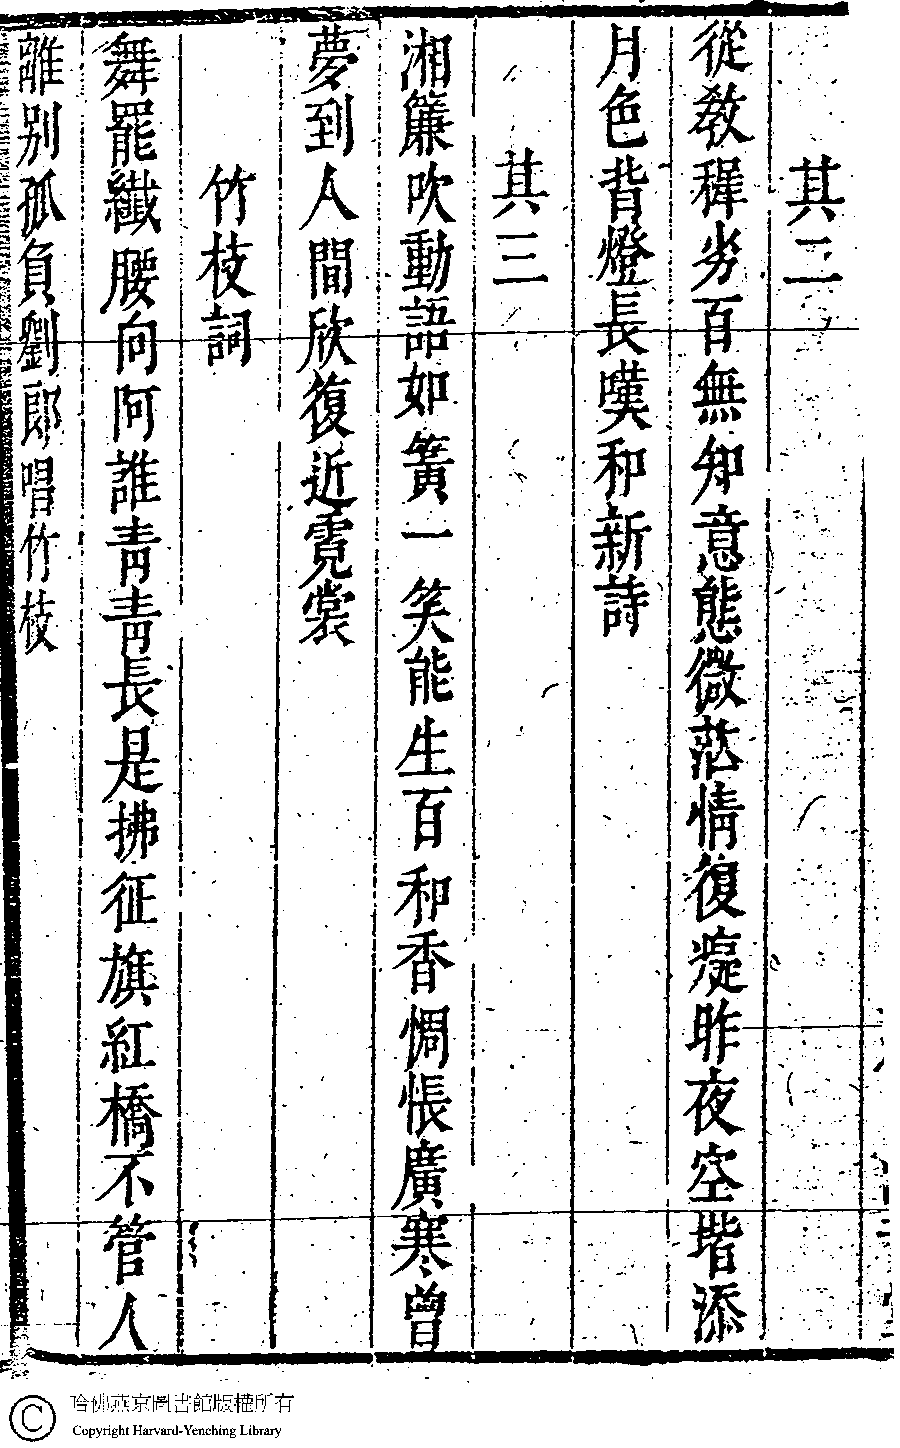 其二
從教穉劣百無知意態微茫情復癡昨夜空堦添
月色背燈長嘆和新詩
其三
湘簾吹動語如簧一笑能生百和香惆悵廣寒曾
夢到人間欣復近霓裳
竹枝詞
舞罷纖腰向阿誰青青長是拂征旗紅橋不管人
離别孤負劉郎唱竹枝
哈佛燕京圖書館版權所有
Copyright Harvard-Yenching Library